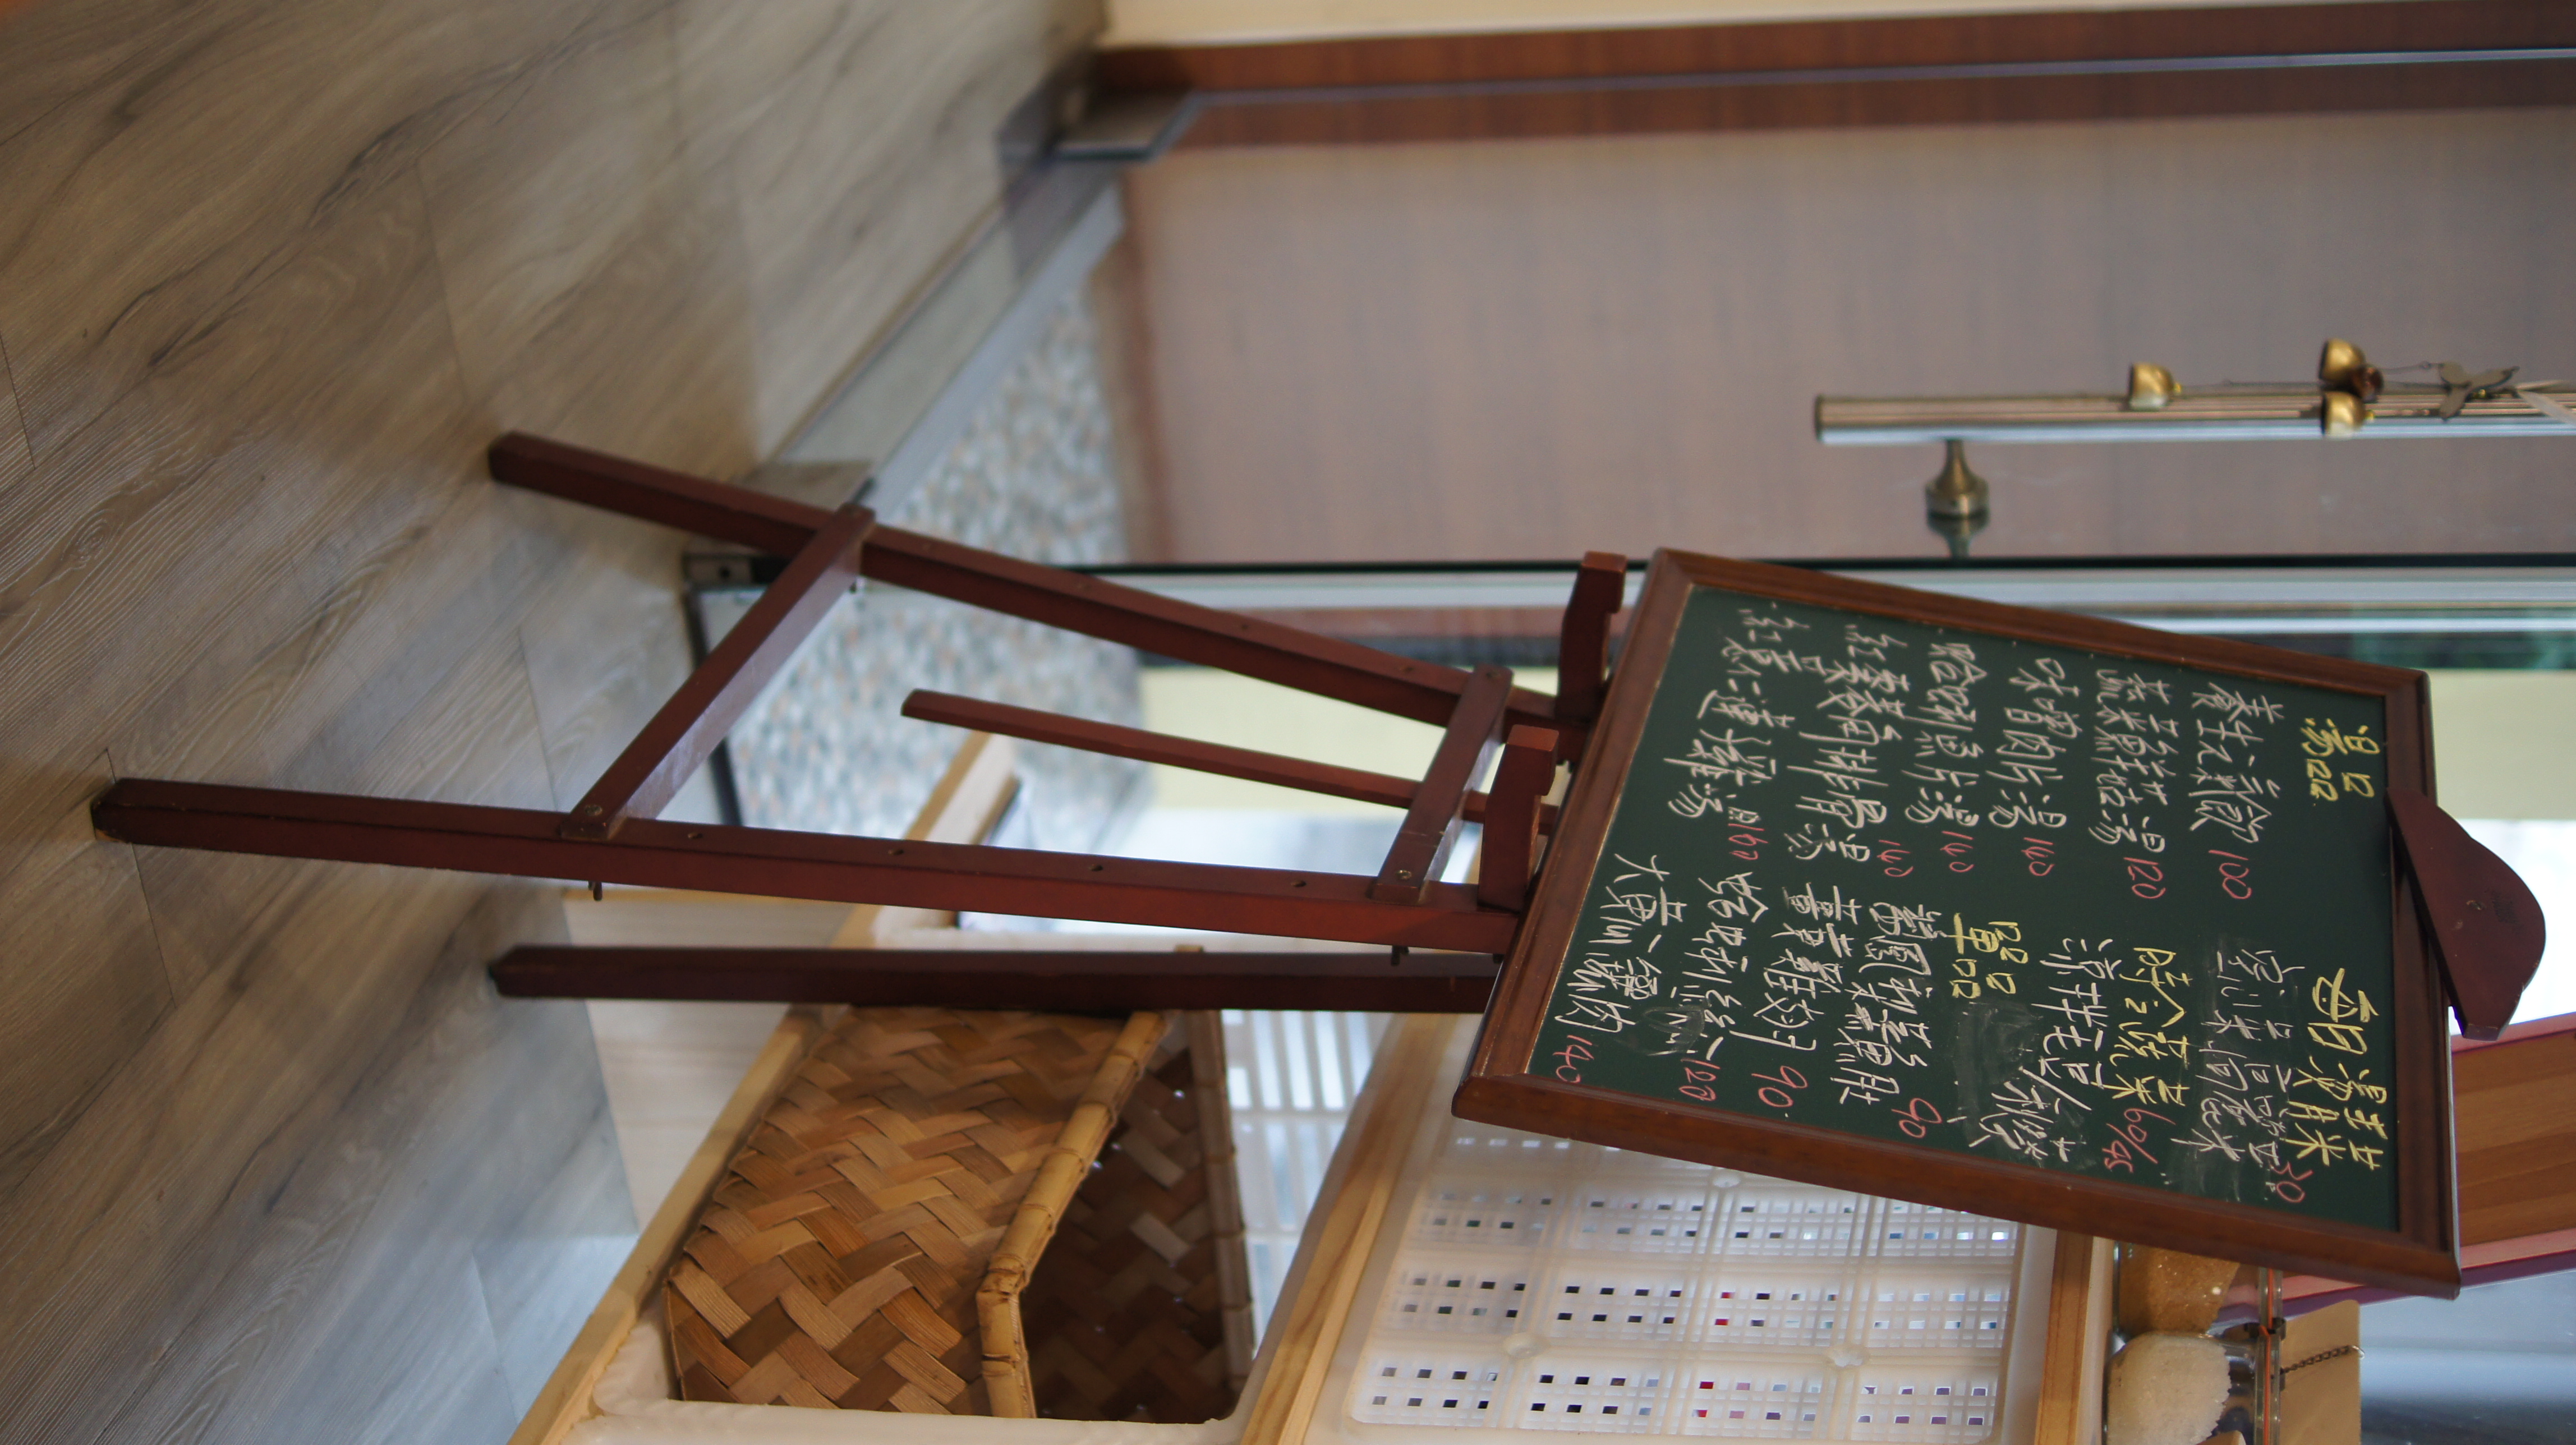 湯品
養生元氣飲 100
蔬菜鮮菇湯 120
味噌肉片湯 140
蛤蜊魚片湯 140
紅棗菱角排骨湯 140
紅薏仁蓮子雞湯 160
每日燙青菜 30
空心菜 高麗菜
時令蔬菜 60/45
涼拌毛豆/秋葵
單品
鳳梨 魚肚 90
薑黃雞翅 90
蛤蜊絲瓜 120
大黃瓜鑲肉 140